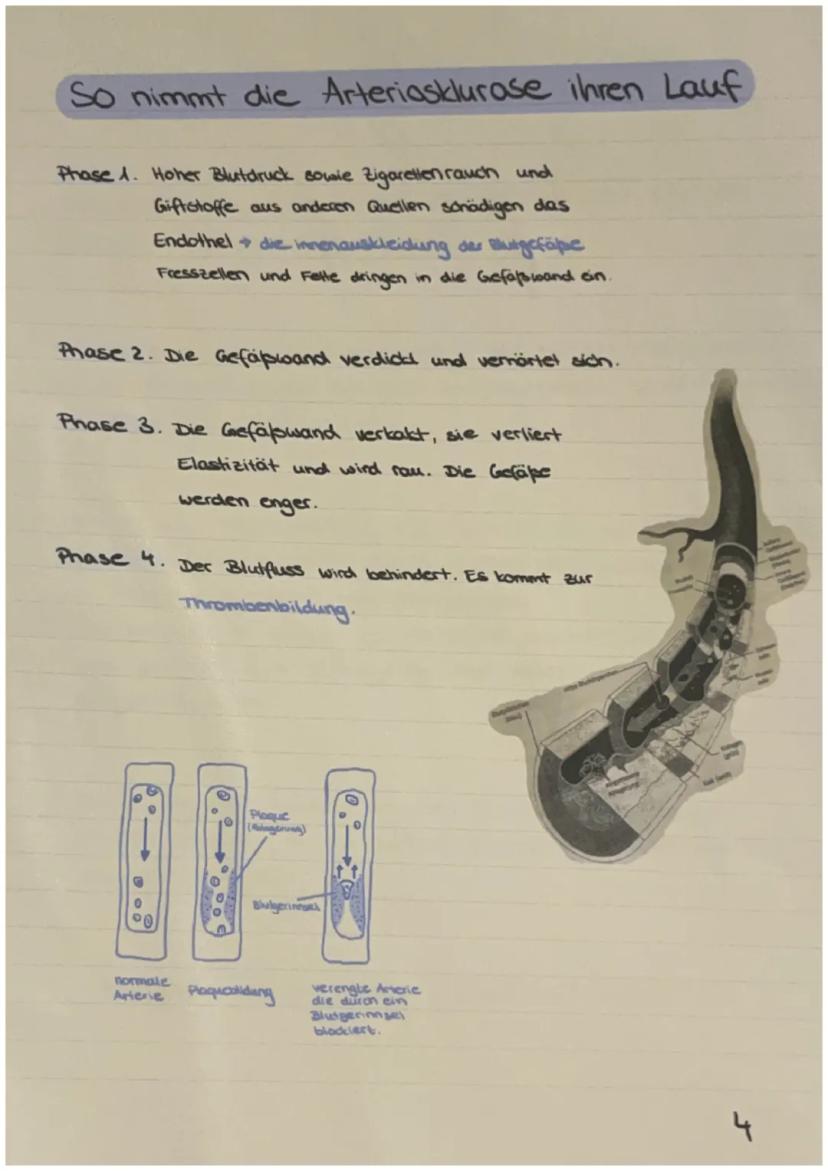 So nimmt die Arteriosklurose ihren Lauf
Phase 1. Hoher Blutdruck sowie Zigarettenrauch und
Giftstoffe aus anderen Quellen schädigen das
Endothel → die innenauskleidung der Blutgefäße
Fresszellen und Fette dringen in die Gefäßwand ein.
Phase 2. Die Gefäßwand verdickt und verhärtet sich.
Phase 3. Die Gefäßwand verkalkt, sie verliert
Elastizität und wird rau. Die Gefäße
werden enger.
Phase 4. Der Blutfluss wird behindert. Es kommt zur
Thrombenbildung.
Plaque
(Ablagerung)
Blutgerinnsel
normale
Arterie
Plaquebildung
verengte Arterie
die durch ein
Blutgerinnsel
blockiert.
4